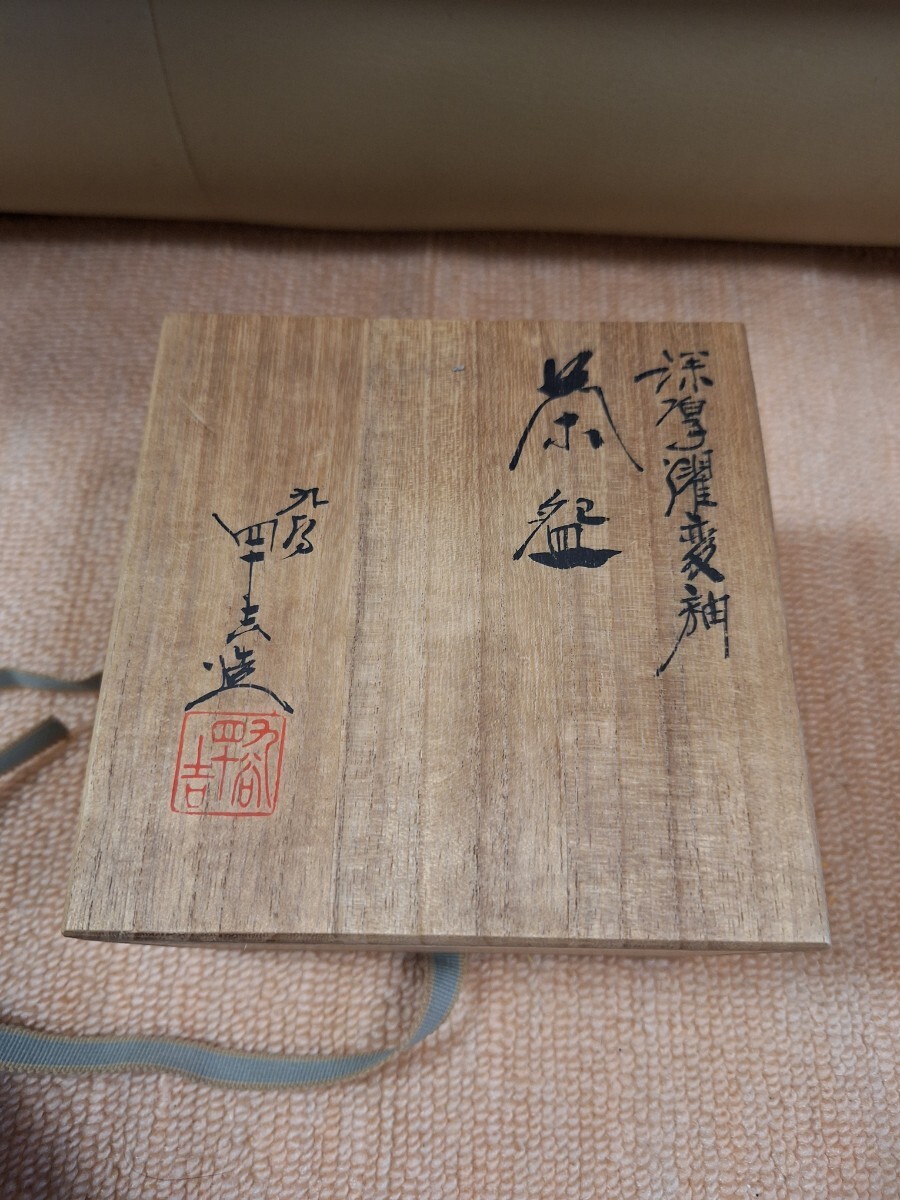 深厚耀変釉
茶盌
九谷
四十吉造
九谷
四十
吉